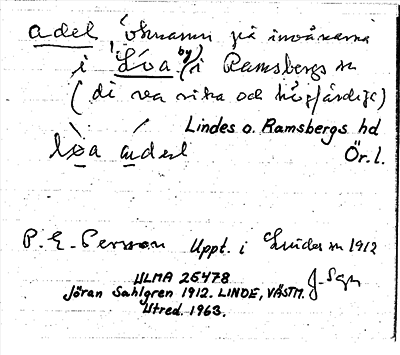 adel öknamn på invånarna
i Löa (by) i Ramsbergs sn
(di va rika och högfärdige)
Lindes o. Ramsbergs hd
löa ádel Ör.l.
P. E. Persson Uppt. i Lindes sn 1912
ULMA 26478 J. Sgn
Jöran Sahlgren 1912. LINDE, VÄSTM.
Utred. 1963.